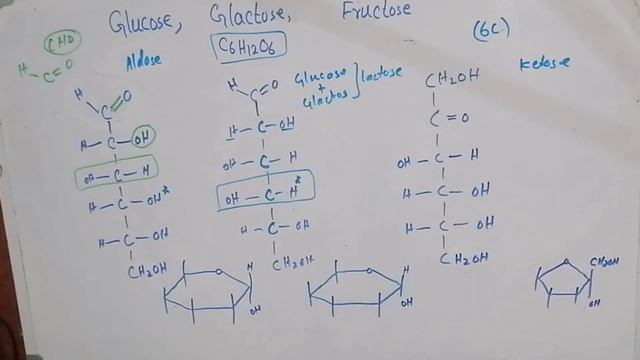 Glucose, Glactose, Fructose
C6H12O6
(6C)
CHO
H - C = O
Aldose
H
C = O
H - C - OH
OH - C - H
H - C - OH*
H - C - OH
CH2OH
H
C = O
H - C - OH
OH - C - H
OH - C - H*
H - C - OH
CH2OH
Glucose
+
Glactos
lactose
CH2OH
C = O
OH - C - H
H - C - OH
H - C - OH
CH2OH
Ketose
O
H
OH
O
H
OH
O
CH2OH
OH